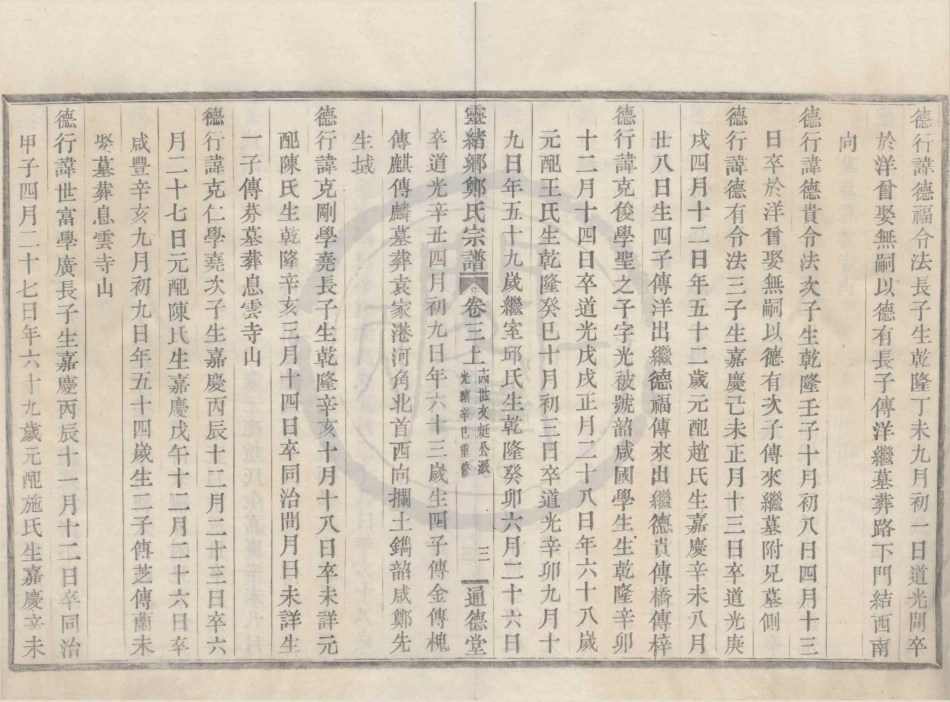 德行諱德福令法長子生乾隆丁未九月初一日道光間卒
於洋曾娶無嗣以德有長子傳洋繼墓葬路下門結西南
向
德行諱德貴令法次子生乾隆壬子十月初八日四月十三
日卒於洋曾娶無嗣以德有次子傳來繼墓附兄墓側
德行諱德有令法三子生嘉慶己未正月十三日卒道光庚
戌四月十二日年五十二歲元配趙氏生嘉慶辛未八月
廿八日生四子傳洋出繼德福傳來出繼德貴傳橋傳梓
德行諱克俊學聖之子字光被號韶咸國學生生乾隆辛卯
十二月十四日卒道光戊戌正月二十八日年六十八歲
元配王氏生乾隆癸巳十月初三日卒道光辛卯九月十
九日年五十九歲繼室邱氏生乾隆癸卯六月二十六日
靈緒鄉鄭氏宗譜 卷三上 光緒辛巳重修 三 通德堂
卒道光辛丑四月初九日年六十三歲生四子傳金傳槐
傳麒傳麟墓葬袁家港河角北首西向攔土鐫韶咸鄭先
生域
德行諱克剛學堯長子生乾隆辛亥十月十八日卒未詳元
配陳氏生乾隆辛亥三月十四日卒同治間月日未詳生
一子傳券墓葬息雲寺山
德行諱克仁學堯次子生嘉慶丙辰十二月二十三日卒六
月二十七日元配陳氏生嘉慶戊午十二月二十六日卒
咸豐辛亥九月初九日年五十四歲生二子傳芝傳蘭未
娶墓葬息雲寺山
德行諱世富學廣長子生嘉慶丙辰十一月十二日卒同治
甲子四月二十七日年六十九歲元配施氏生嘉慶辛未